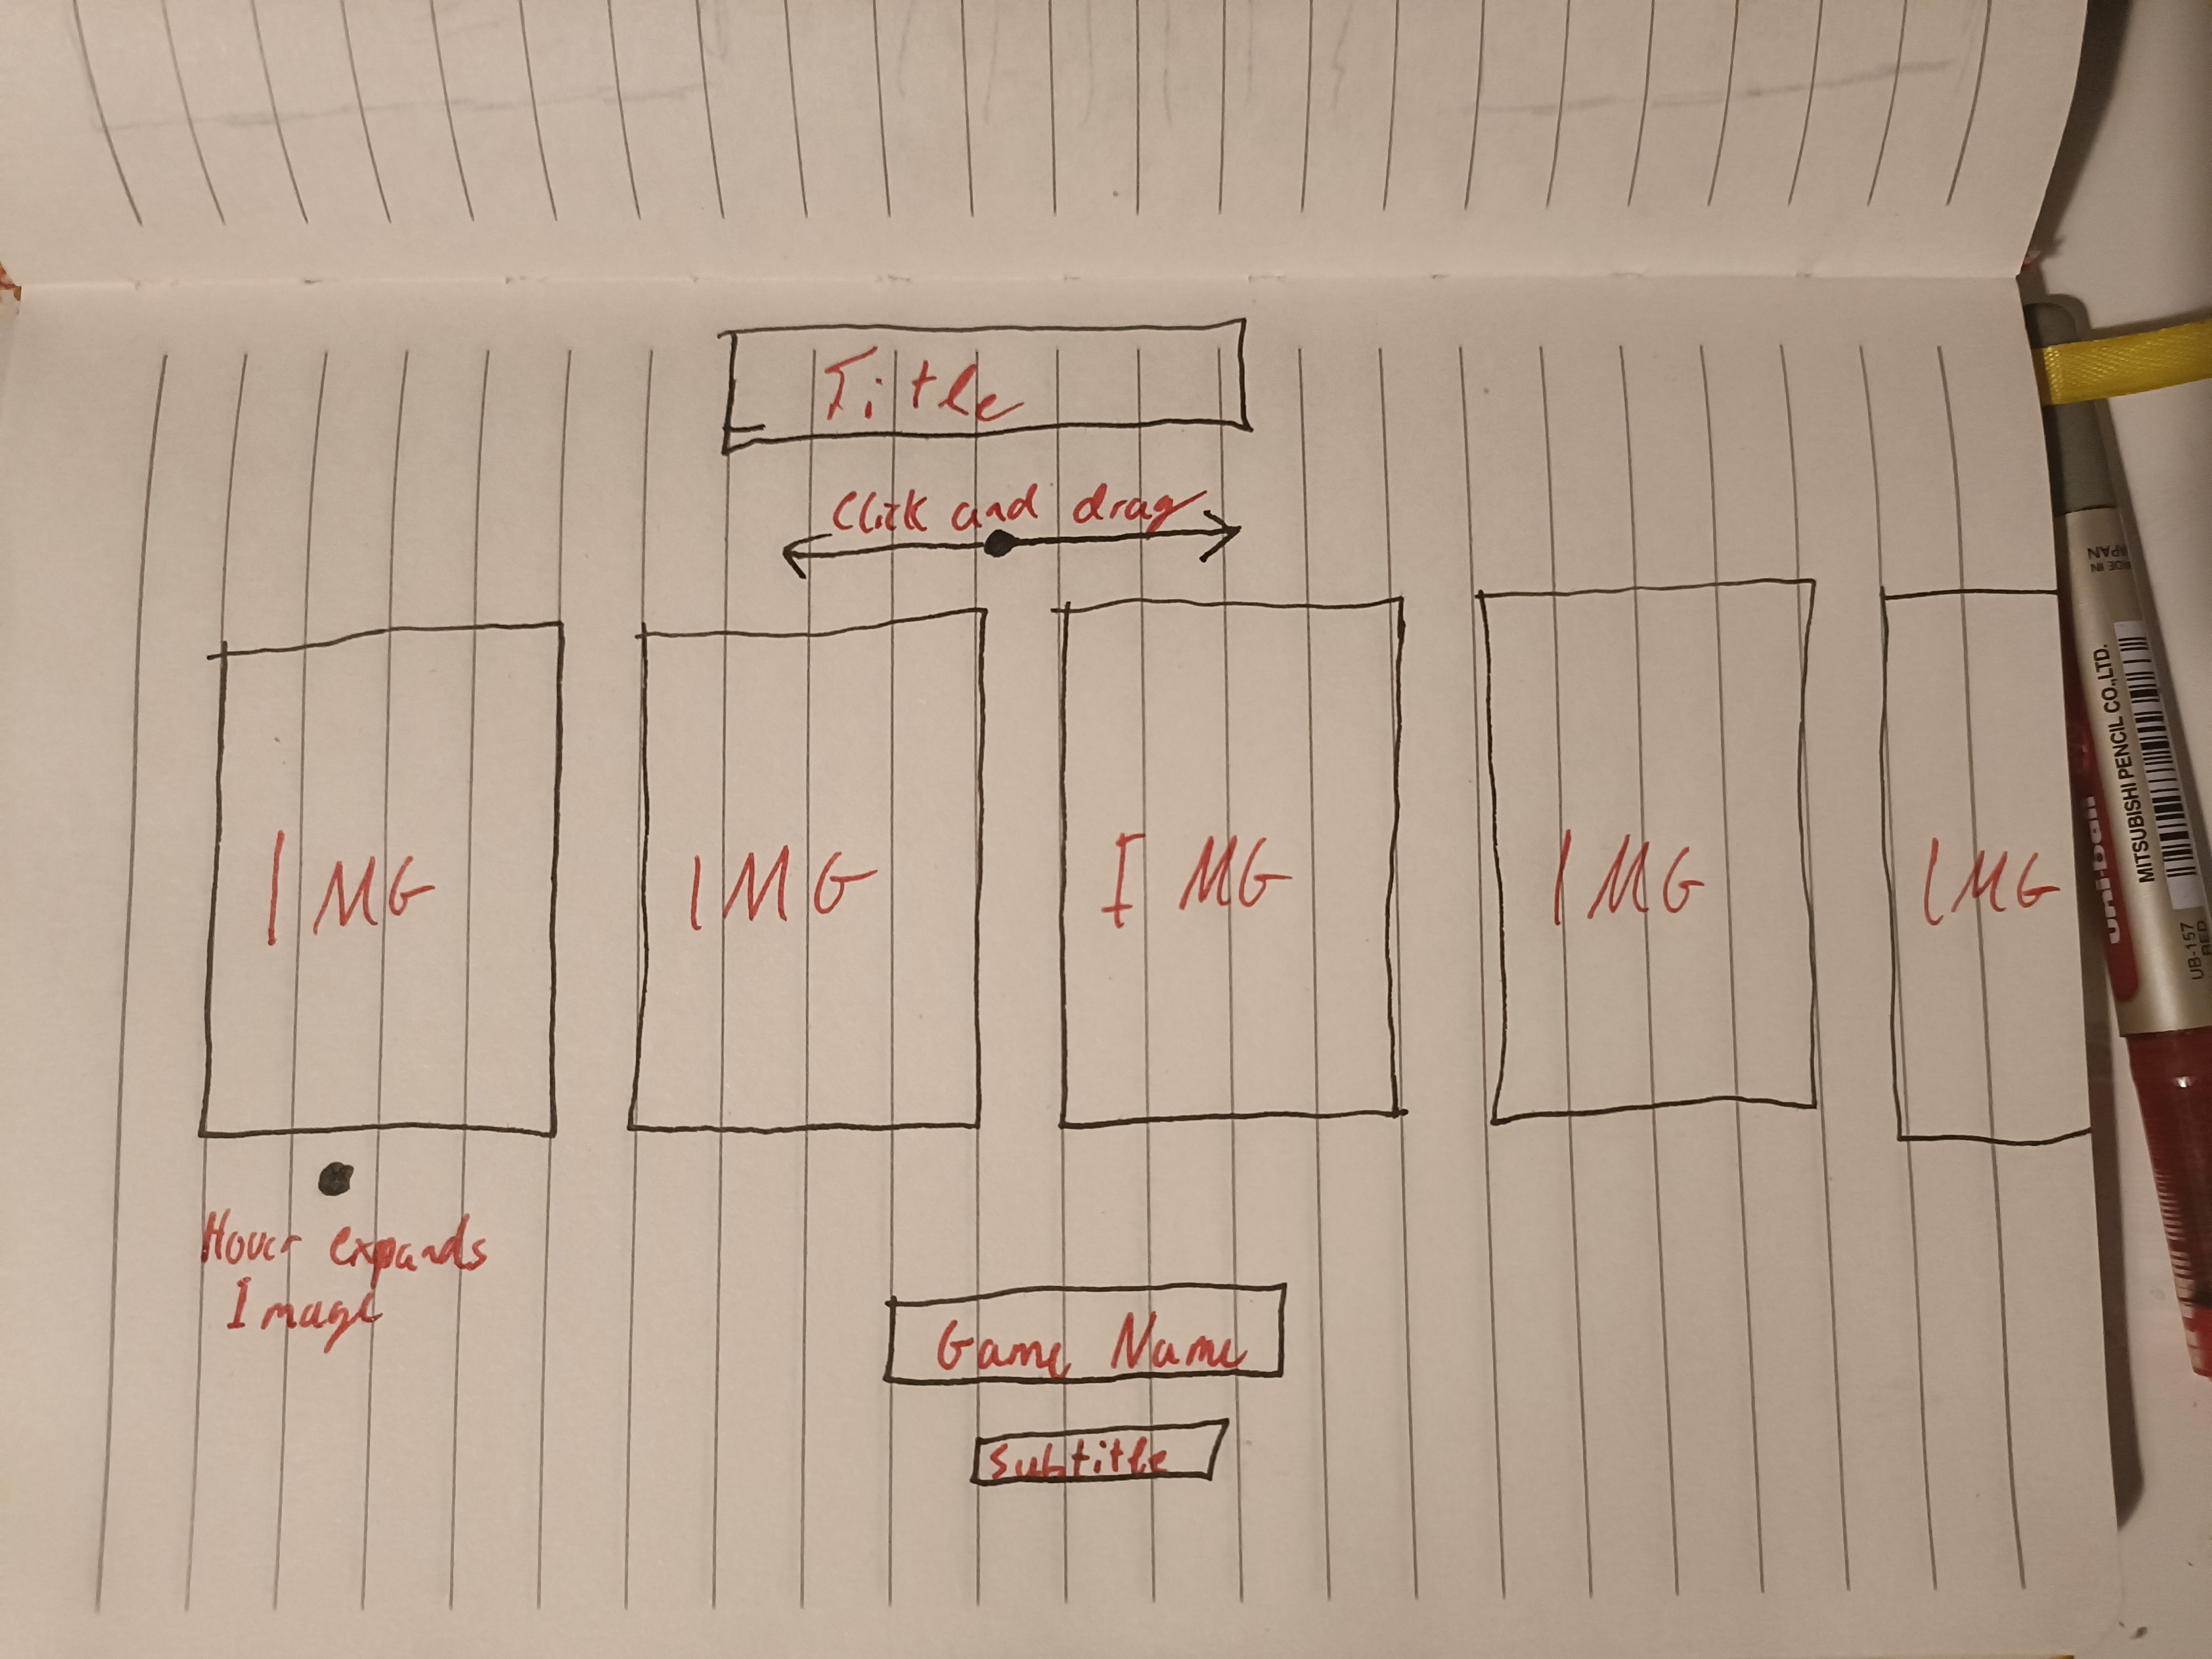 Title
Click and drag
IMG
IMG
IMG
IMG
IMG
Hover expands
Image
Game Name
Subtitle
MADE IN
JAPAN
MITSUBISHI PENCIL CO.,LTD.
uni-ball
UB-157
RED